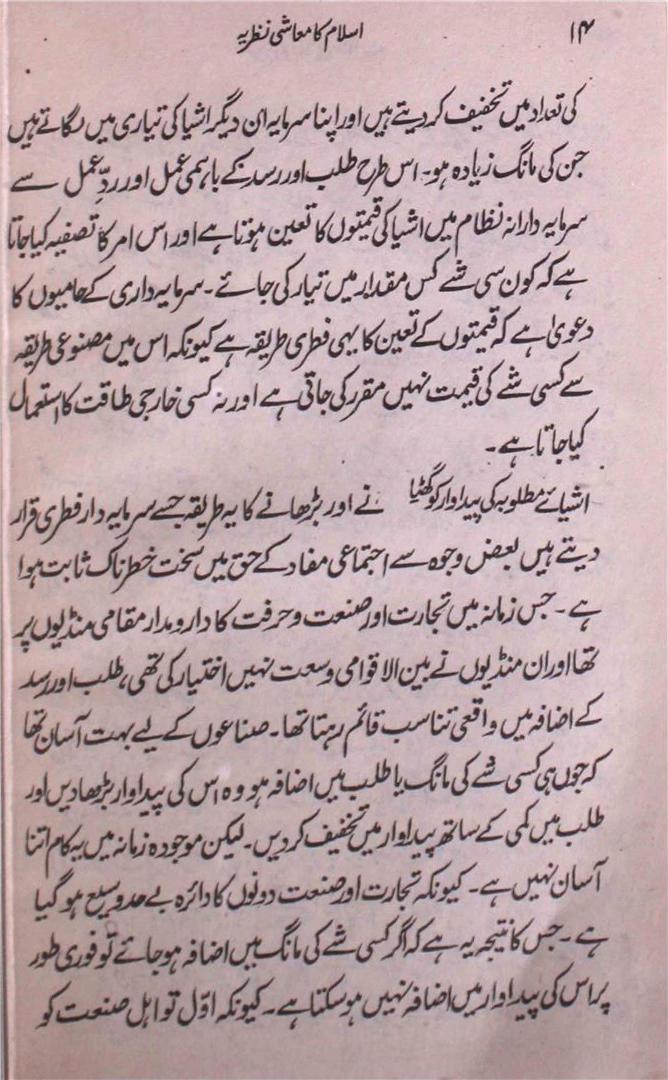 ۱۴
اسلام کا معاشی نظریہ
کی تعداد میں تخفیف کر دیتے ہیں اور اپنا سرمایہ ان دیگر اشیا کی تیاری میں لگاتے ہیں
جن کی مانگ زیادہ ہو۔ اس طرح طلب اور رسد کے باہمی عمل اور ردِّ عمل سے
سرمایہ دارانہ نظام میں اشیا کی قیمتوں کا تعین ہوتا ہے اور اس امر کا تصفیہ کیا جاتا
ہے کہ کون سی شے کس مقدار میں تیار کی جائے۔ سرمایہ داری کے حامیوں کا
دعویٰ ہے کہ قیمتوں کے تعین کا یہی فطری طریقہ ہے کیونکہ اس میں مصنوعی طریقہ
سے کسی شے کی قیمت نہیں مقرر کی جاتی ہے اور نہ کسی خارجی طاقت کا استعمال
کیا جاتا ہے۔
اشیائے مطلوبہ کی پیداوار کو گھٹیا نے اور بڑھانے کا یہ طریقہ جسے سرمایہ دار فطری قرار
دیتے ہیں بعض وجوہ سے اجتماعی مفاد کے حق میں سخت خطرناک ثابت ہوا
ہے۔ جس زمانہ میں تجارت اور صنعت و حرفت کا دارومدار مقامی منڈیوں پر
تھا اور ان منڈیوں نے بین الاقوامی وسعت نہیں اختیار کی تھی، طلب اور رسد
کے اضافہ میں واقعی تناسب قائم رہتا تھا۔ صناعوں کے لیے بہت آسان تھا
کہ جوں ہی کسی شے کی مانگ یا طلب میں اضافہ ہو وہ اس کی پیداوار بڑھا دیں اور
طلب میں کمی کے ساتھ پیداوار میں تخفیف کر دیں۔ لیکن موجودہ زمانہ میں یہ کام اتنا
آسان نہیں ہے۔ کیونکہ تجارت اور صنعت دونوں کا دائرہ بے حد وسیع ہو گیا
ہے۔ جس کا نتیجہ یہ ہے کہ اگر کسی شے کی مانگ میں اضافہ ہو جائے تو فوری طور
پر اس کی پیداوار میں اضافہ نہیں ہو سکتا ہے۔ کیونکہ اوّل تو اہل صنعت کو